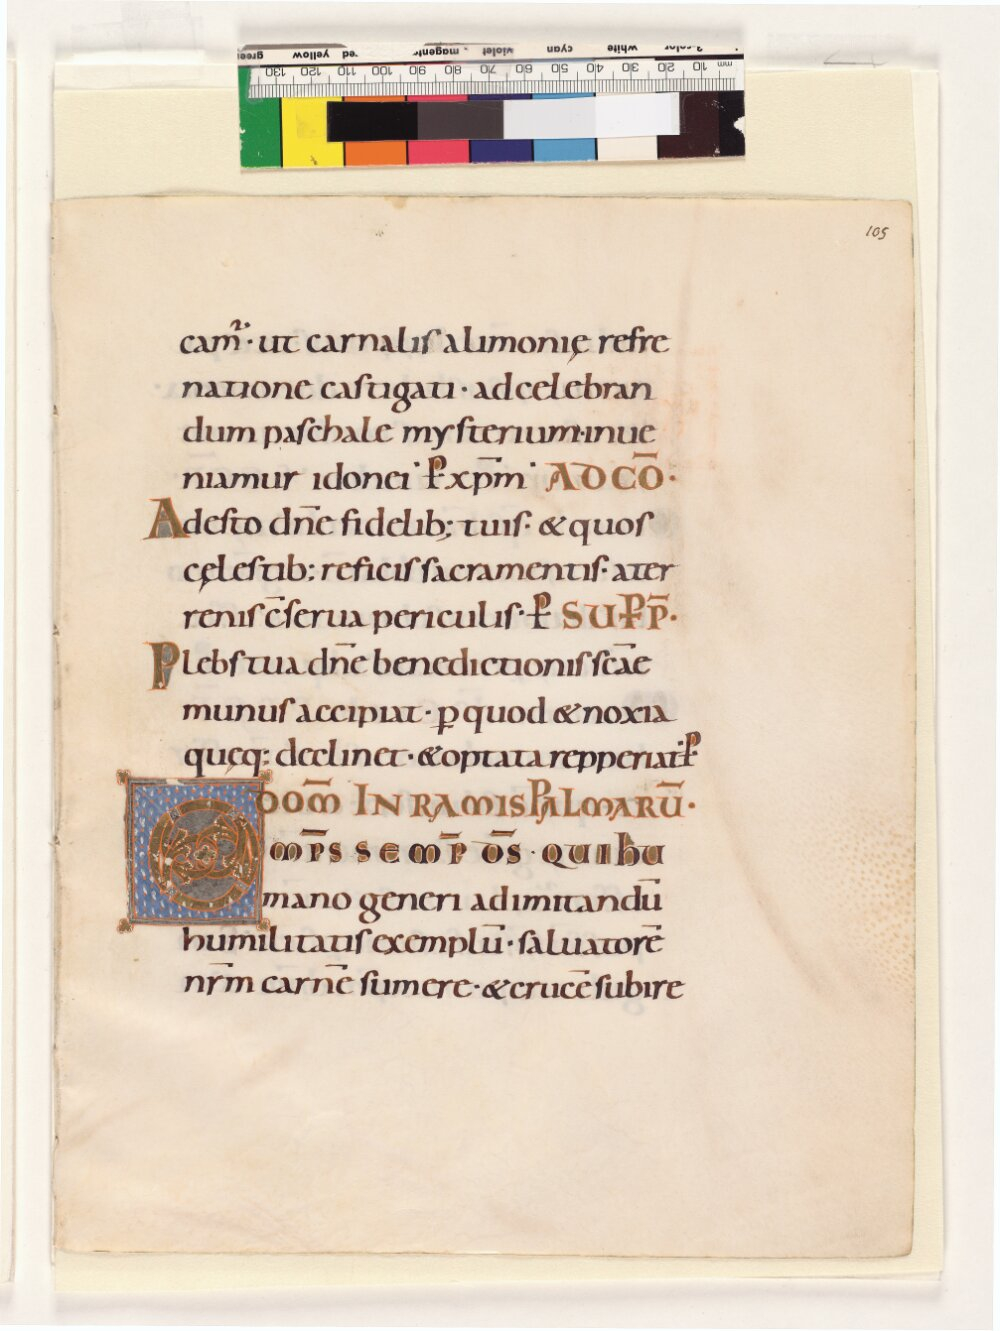 green yellow red magenta violet cyan white 3-color
130 120 110 100 90 80 70 60 50 40 30 20 10 mm
105
cam̅ᷣ· ut carnalis alimonię refre
natione castigati · ad celebran
dum paschale mysterium·inue
niamur idonei · P xp̅m · AD CO̅·
Adesto dn̅e fidelib; tuis· & quos
cęlestib; reficis sacramentis· a ter
renis c̅serua periculis· P SUPP̅·
Plebs tua dn̅e benedictionis sc̅ae
munus accipiat · ꝑ quod & noxia
quęq; declinet · & optata repperiat· P
DOM̅ IN RAMIS PALMARU̅·
O MP̅S SEMP̅ DS̅ · QUI HU
mano generi ad imitandu̅
humilitatis exemplu̅ · saluatore̅
nr̅m carne̅ sumere · & cruce̅ subire